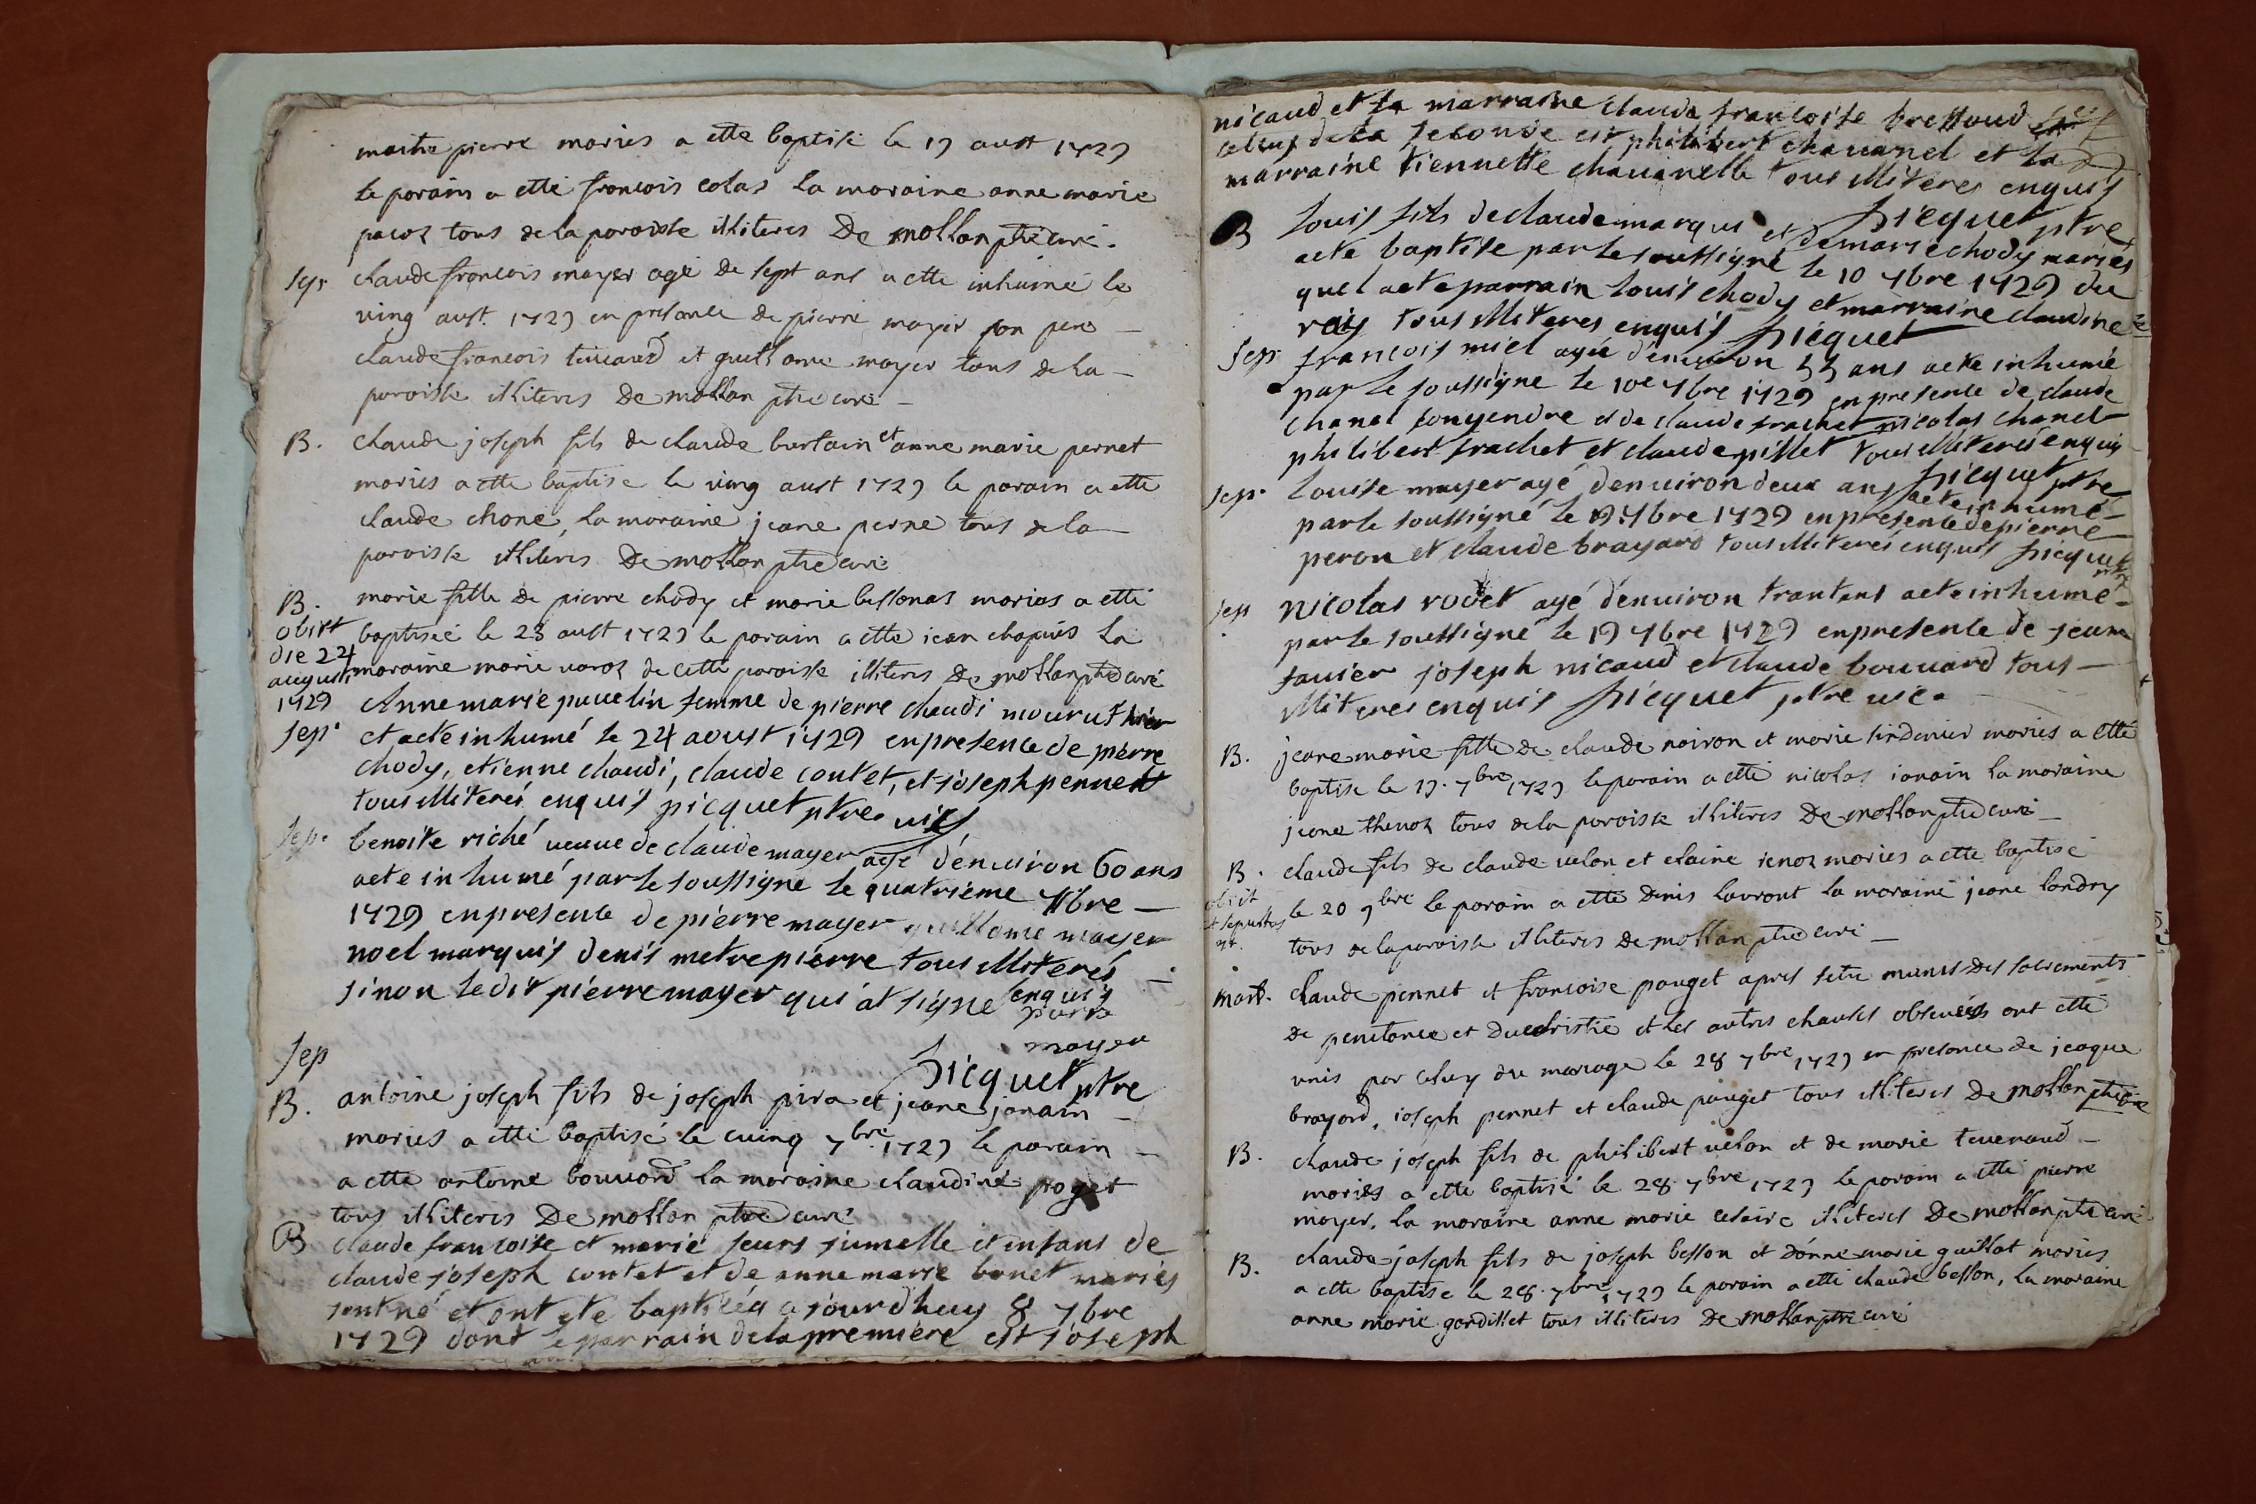 maitre pierre mariés a ette baptisé le 19 aust 1729
le parain a etté francois colas la maraine anne marie
pacoz tous de la paroisse illiteres De mollan ptre curé.
sep. claude francois mayer agé de sept ans a ette inhumé le
ving aust. 1729 en presance de pierre mayer son pere -
claude francois et guillame mayer tous de la -
paroisse illiteres De mollan ptre curé -
B. claude joseph fils de claude burtain et anne marie pernet
mariés a ette baptisé le ving aust 1729 le parain a ette
claude chone, la maraine jeane perne tous de la -
paroisse illiteres De mollan ptre curé
B. marie fille de pierre chody et marie bessonas mariés a etté
obiit die 24 augusti 1729
baptiseé le 23 aust 1729 le parain a ette jean chapuis la
maraine marie varoz de cette paroisse illiteres De mollan ptre curé
sep. Anne marie puvelin femme de pierre chaudi mourut hier
et aete inhumé le 24 aoust 1729 en presence de pierre
chody, etienne chaudi, claude contet, et joseph pennet
tous illiterés enquis picquet ptre vic
sep. benoite riché veuve de claude mayer agé d'environ 60 ans
aete inhumé par le soussigne le quatrieme 7bre -
1729 en presence de pierre mayer guillame mayer
noel marquis denis metrepierre tous illiterés -
sinon ledit pierre mayer qui at signe enquis
pierre
mayer
sep
picquet ptre
B. antoine joseph fils de joseph pira et jeane janain -
mariés a etté baptisé le cuinq 7bre 1729 le parain -
a ette antoine bouvard la maraine claudine poget
tous illiteres De mollan ptre curé
B claude francoise et marie seurs jumelle et enfans de
claude joseph contet et de anne marie bonet mariés
sont né et ont ete baptiséea ajourdhuy 8 7bre
1729 dont le parrain de la premiere est joseph
nicaud et la marraine claude francoise bressoud
celuy de la seconde est philibert chavanel et la
marraine tiennette chavanelle tous illiteres enquis
picquet ptre
B louis fils de claude marquis et de marie chody mariés
aete baptise par le soussigné le 10 7bre 1729 du
quel aete parrain louis chody et marraine claudine
tous illiteres enquis picquet
sep francois miel agée d'environ 55 ans aete inhumé
par le soussigne le 10e 7bre 1729 en presence de claude
chanel son gendre et de claude frachet nicolas chanel
philibert frachet et claude pillet tous illiterés enquis
picquet ptre
sep. louise mayer agé d'environ deux ans aete inhumé -
par le soussigné le 19 7bre 1729 en presence de pierre
peron et claude brayard tous illiterés enquis picquet
ptre
sep nicolas rovet agé d'environ trantans aete inhumé -
par le soussigné le 19 7bre 1729 en presence de jeane
tavier joseph nicaud et claude bouvard tous -
illiteres enquis picquet ptre vic.
B. jeane marie fille de claude noiron et marie mariés a ette
baptise le 19. 7bre 1729 le parain a etté nicolas janain la maraine
jeane thevoz tous de la paroisse illiteres De mollan ptre curé -
B. claude fils de claude velon et claine mariés a ette baptisé
obiit et sepultus
le 20 7bre le parain a ette denis lavront la maraine jeane landry
tous de la paroisse illiteres De mollan ptre curé -
mari. claude pennet et francoise pouget apres setre munis des sacrements
de penitance et du et les autres chauses observées ont etté
unis par celuy du mariage le 28 7bre 1729 en presance de jeaque
brayard, joseph pennet et claude pouget tous illiteres De mollan ptre curé
B. claude joseph fils de philibert velon et de marie tevenaud -
mariés a ette baptisé le 28. 7bre 1729 le parain a etté pierre
mayer. la maraine anne marie cesaire illiteres De mollan ptre curé
B. claude joseph fils de joseph besson et d'anne marie guillot mariés
a ette baptisé le 28. 7bre 1729 le parain a etté claude besson, la maraine
anne marie gordillet tous illiteres De mollan ptre curé